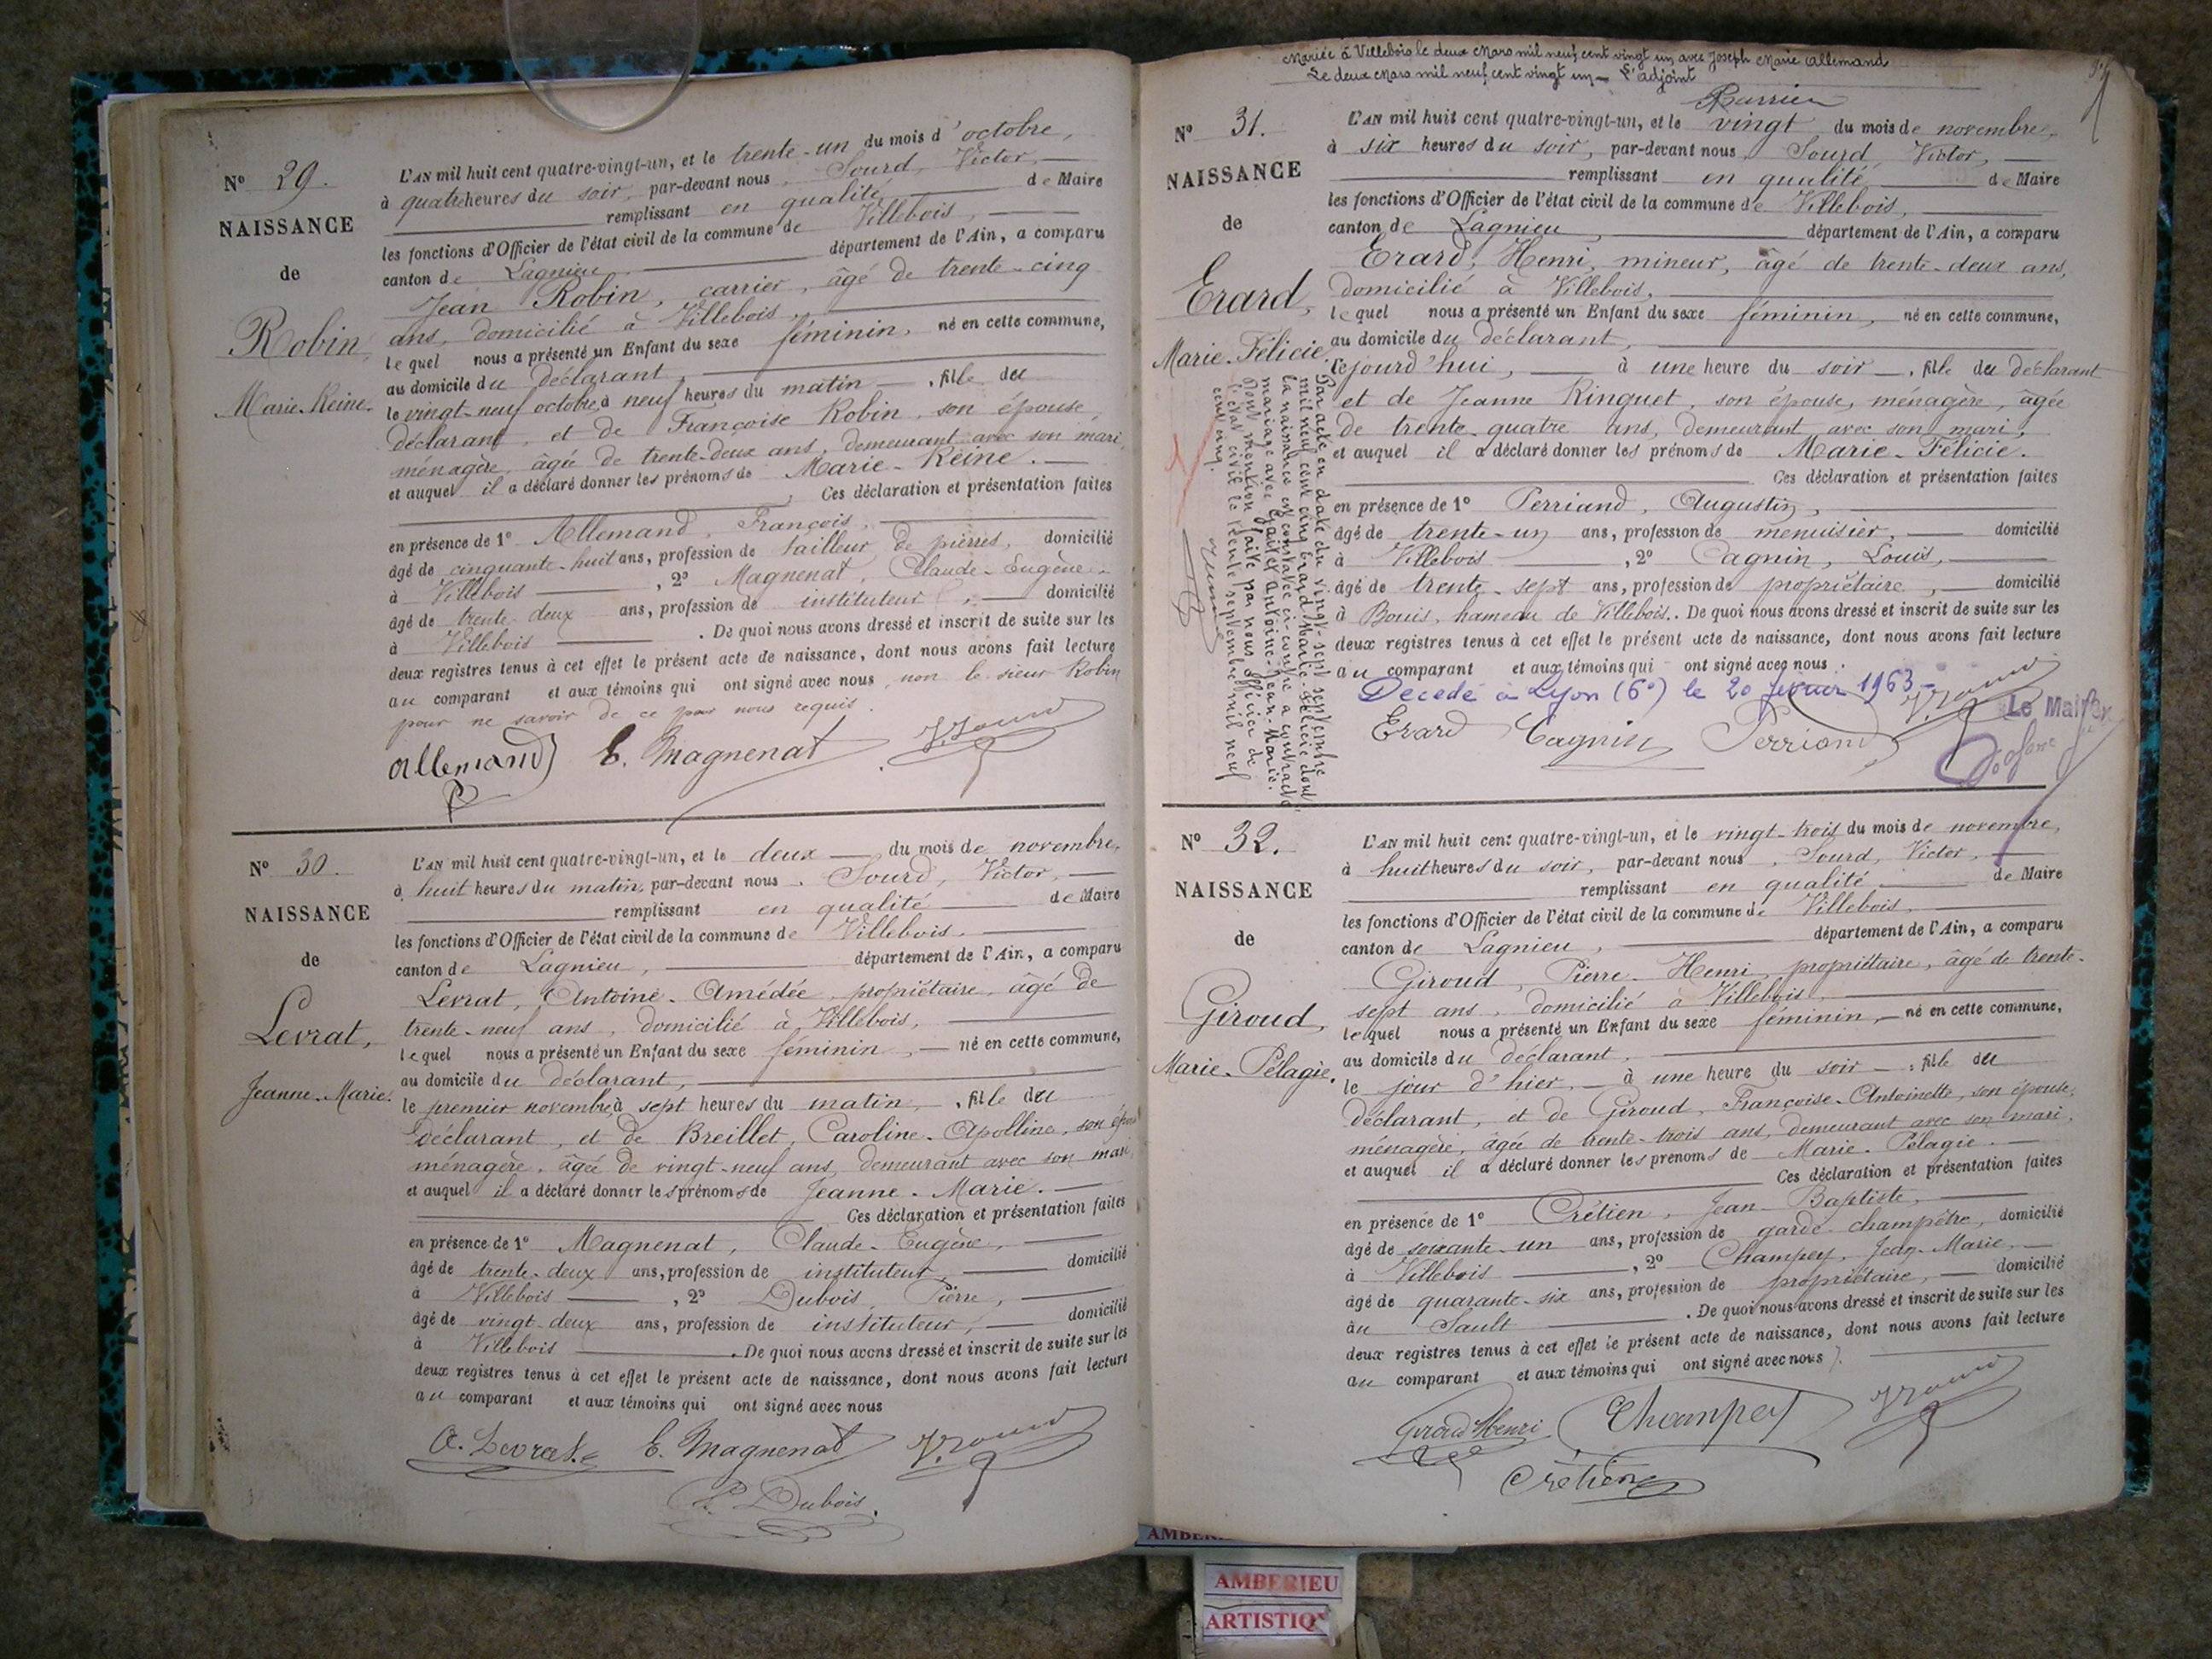 Nº 29.
NAISSANCE
de
Robin,
Marie-Reine.
L'AN mil huit cent quatre-vingt-un, et le trente-un du mois d'octobre,
à quatre heures du soir, par-devant nous, Sourd, Victor,
remplissant en qualité de Maire
les fonctions d'Officier de l'état civil de la commune de Villebois,
canton de Lagnieu, département de l'Ain, a comparu
Jean Robin, carrier, âgé de trente-cinq
ans, domicilié à Villebois,
lequel nous a présenté un Enfant du sexe féminin, né en cette commune,
au domicile du déclarant,
le vingt-neuf octobre, à neuf heures du matin, fille du
déclarant, et de Françoise Robin, son épouse,
ménagère, âgée de trente-deux ans, demeurant avec son mari,
et auquel il a déclaré donner les prénoms de Marie-Reine.
Ces déclaration et présentation faites
en présence de 1º Allemand, François,
âgé de cinquante-huit ans, profession de tailleur de pierres, domicilié
à Villebois, 2º Magnenat, Claude-Eugène,
âgé de trente-deux ans, profession de instituteur, domicilié
à Villebois. De quoi nous avons dressé et inscrit de suite sur les
deux registres tenus à cet effet le présent acte de naissance, dont nous avons fait lecture
au comparant et aux témoins qui ont signé avec nous, non le sieur Robin
pour ne savoir de ce par nous requis.
Allemand E. Magnenat V. Sourd
Nº 30.
NAISSANCE
de
Levrat,
Jeanne-Marie.
L'AN mil huit cent quatre-vingt-un, et le deux du mois de novembre,
à huit heures du matin, par-devant nous, Sourd, Victor,
remplissant en qualité de Maire
les fonctions d'Officier de l'état civil de la commune de Villebois,
canton de Lagnieu, département de l'Ain, a comparu
Levrat, Antoine-Amédée, propriétaire, âgé de
trente-neuf ans, domicilié à Villebois,
lequel nous a présenté un Enfant du sexe féminin, né en cette commune,
au domicile du déclarant,
le premier novembre, à sept heures du matin, fille du
déclarant, et de Breillet, Caroline-Apolline, son épouse
ménagère, âgée de vingt-neuf ans, demeurant avec son mari,
et auquel il a déclaré donner les prénoms de Jeanne-Marie.
Ces déclaration et présentation faites
en présence de 1º Magnenat, Claude-Eugène,
âgé de trente-deux ans, profession de instituteur, domicilié
à Villebois, 2º Dubois, Pierre,
âgé de vingt-deux ans, profession de instituteur, domicilié
à Villebois. De quoi nous avons dressé et inscrit de suite sur les
deux registres tenus à cet effet le présent acte de naissance, dont nous avons fait lecture
au comparant et aux témoins qui ont signé avec nous
A. Levrat E. Magnenat V. Sourd
P. Dubois
Mariée à Villebois le deux Mars mil neuf cent vingt un avec Joseph Marie Allemand
Le deux Mars mil neuf cent vingt un - L'adjoint
Nº 31.
NAISSANCE
de
Erard,
Marie-Félicie.
L'AN mil huit cent quatre-vingt-un, et le vingt du mois de novembre,
à six heures du soir, par-devant nous, Sourd, Victor,
remplissant en qualité de Maire
les fonctions d'Officier de l'état civil de la commune de Villebois,
canton de Lagnieu, département de l'Ain, a comparu
Erard, Henri, mineur, âgé de trente-deux ans,
domicilié à Villebois,
lequel nous a présenté un Enfant du sexe féminin, né en cette commune,
au domicile du déclarant,
cejourd'hui, à une heure du soir, fille du déclarant
et de Jeanne Ringuet, son épouse, ménagère, âgée
de trente-quatre ans, demeurant avec son mari,
et auquel il a déclaré donner les prénoms de Marie-Félicie.
Ces déclaration et présentation faites
en présence de 1º Perriand, Augustin,
âgé de trente-un ans, profession de menuisier, domicilié
à Villebois, 2º Cagnin, Louis,
âgé de trente-sept ans, profession de propriétaire, domicilié
à Bouis, hameau de Villebois. De quoi nous avons dressé et inscrit de suite sur les
deux registres tenus à cet effet le présent acte de naissance, dont nous avons fait lecture
au comparant et aux témoins qui ont signé avec nous.
Décédé à Lyon (6e) le 20 février 1963
Le Maire
Erard Cagnin Perriand V. Sourd
Par acte en date du vingt-sept septembre
mil neuf cent cinq Erard Marie-Félicie dont
la naissance est constatée ci-contre a contracté
mariage avec Antoine-Jean-Marie.
Dont mention faite par nous officier de
l'état civil le trente septembre mil neuf
cent cinq.
Nº 32.
NAISSANCE
de
Giroud,
Marie-Pélagie.
L'AN mil huit cent quatre-vingt-un, et le vingt-trois du mois de novembre,
à huit heures du soir, par-devant nous, Sourd, Victor,
remplissant en qualité de Maire
les fonctions d'Officier de l'état civil de la commune de Villebois,
canton de Lagnieu, département de l'Ain, a comparu
Giroud, Pierre-Henri, propriétaire, âgé de trente-
sept ans, domicilié à Villebois,
lequel nous a présenté un Enfant du sexe féminin, né en cette commune,
au domicile du déclarant,
le jour d'hier, à une heure du soir, fille du
déclarant, et de Giroud, Françoise-Antoinette, son épouse,
ménagère, âgée de trente-trois ans, demeurant avec son mari,
et auquel il a déclaré donner les prénoms de Marie-Pélagie.
Ces déclaration et présentation faites
en présence de 1º Crétien, Jean-Baptiste,
âgé de soixante-un ans, profession de garde-champêtre, domicilié
à Villebois, 2º Champey, Jean-Marie,
âgé de quarante-six ans, profession de propriétaire, domicilié
au Sault. De quoi nous avons dressé et inscrit de suite sur les
deux registres tenus à cet effet le présent acte de naissance, dont nous avons fait lecture
au comparant et aux témoins qui ont signé avec nous.
Giroud Henri Champey V. Sourd
Crétien
AMBERIEU
ARTISTIQ